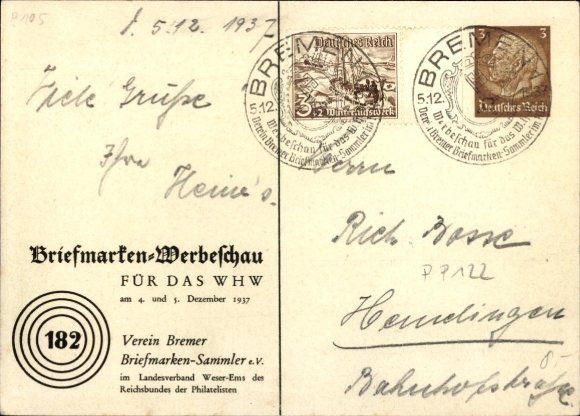 P105
d. 5.12.1937
Viele Grüße
Ihre
Heine's.
Briefmarken-Werbeschau
FÜR DAS WHW
am 4. und 5. Dezember 1937
182
Verein Bremer
Briefmarken-Sammler e.V.
im Landesverband Weser-Ems des
Reichsbundes der Philatelisten
Deutsches Reich
3+2 Winterhilfswerk
BREMEN
5.12.
Werbeschau für das W.H.W.
Verein Bremer Briefmarken-Sammler
3 3
Deutsches Reich
BREMEN
5.12. 1937
Werbeschau für das W.
Verein Bremer Briefmarken-Sammler
Herrn
Rich. Bosse
P 7122
Hemelingen
8-
Bahnhofstraße